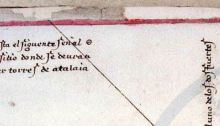 sta el siguente señal
sitio donde se deuran
er torres de atalaia
uno de los dos fuertes